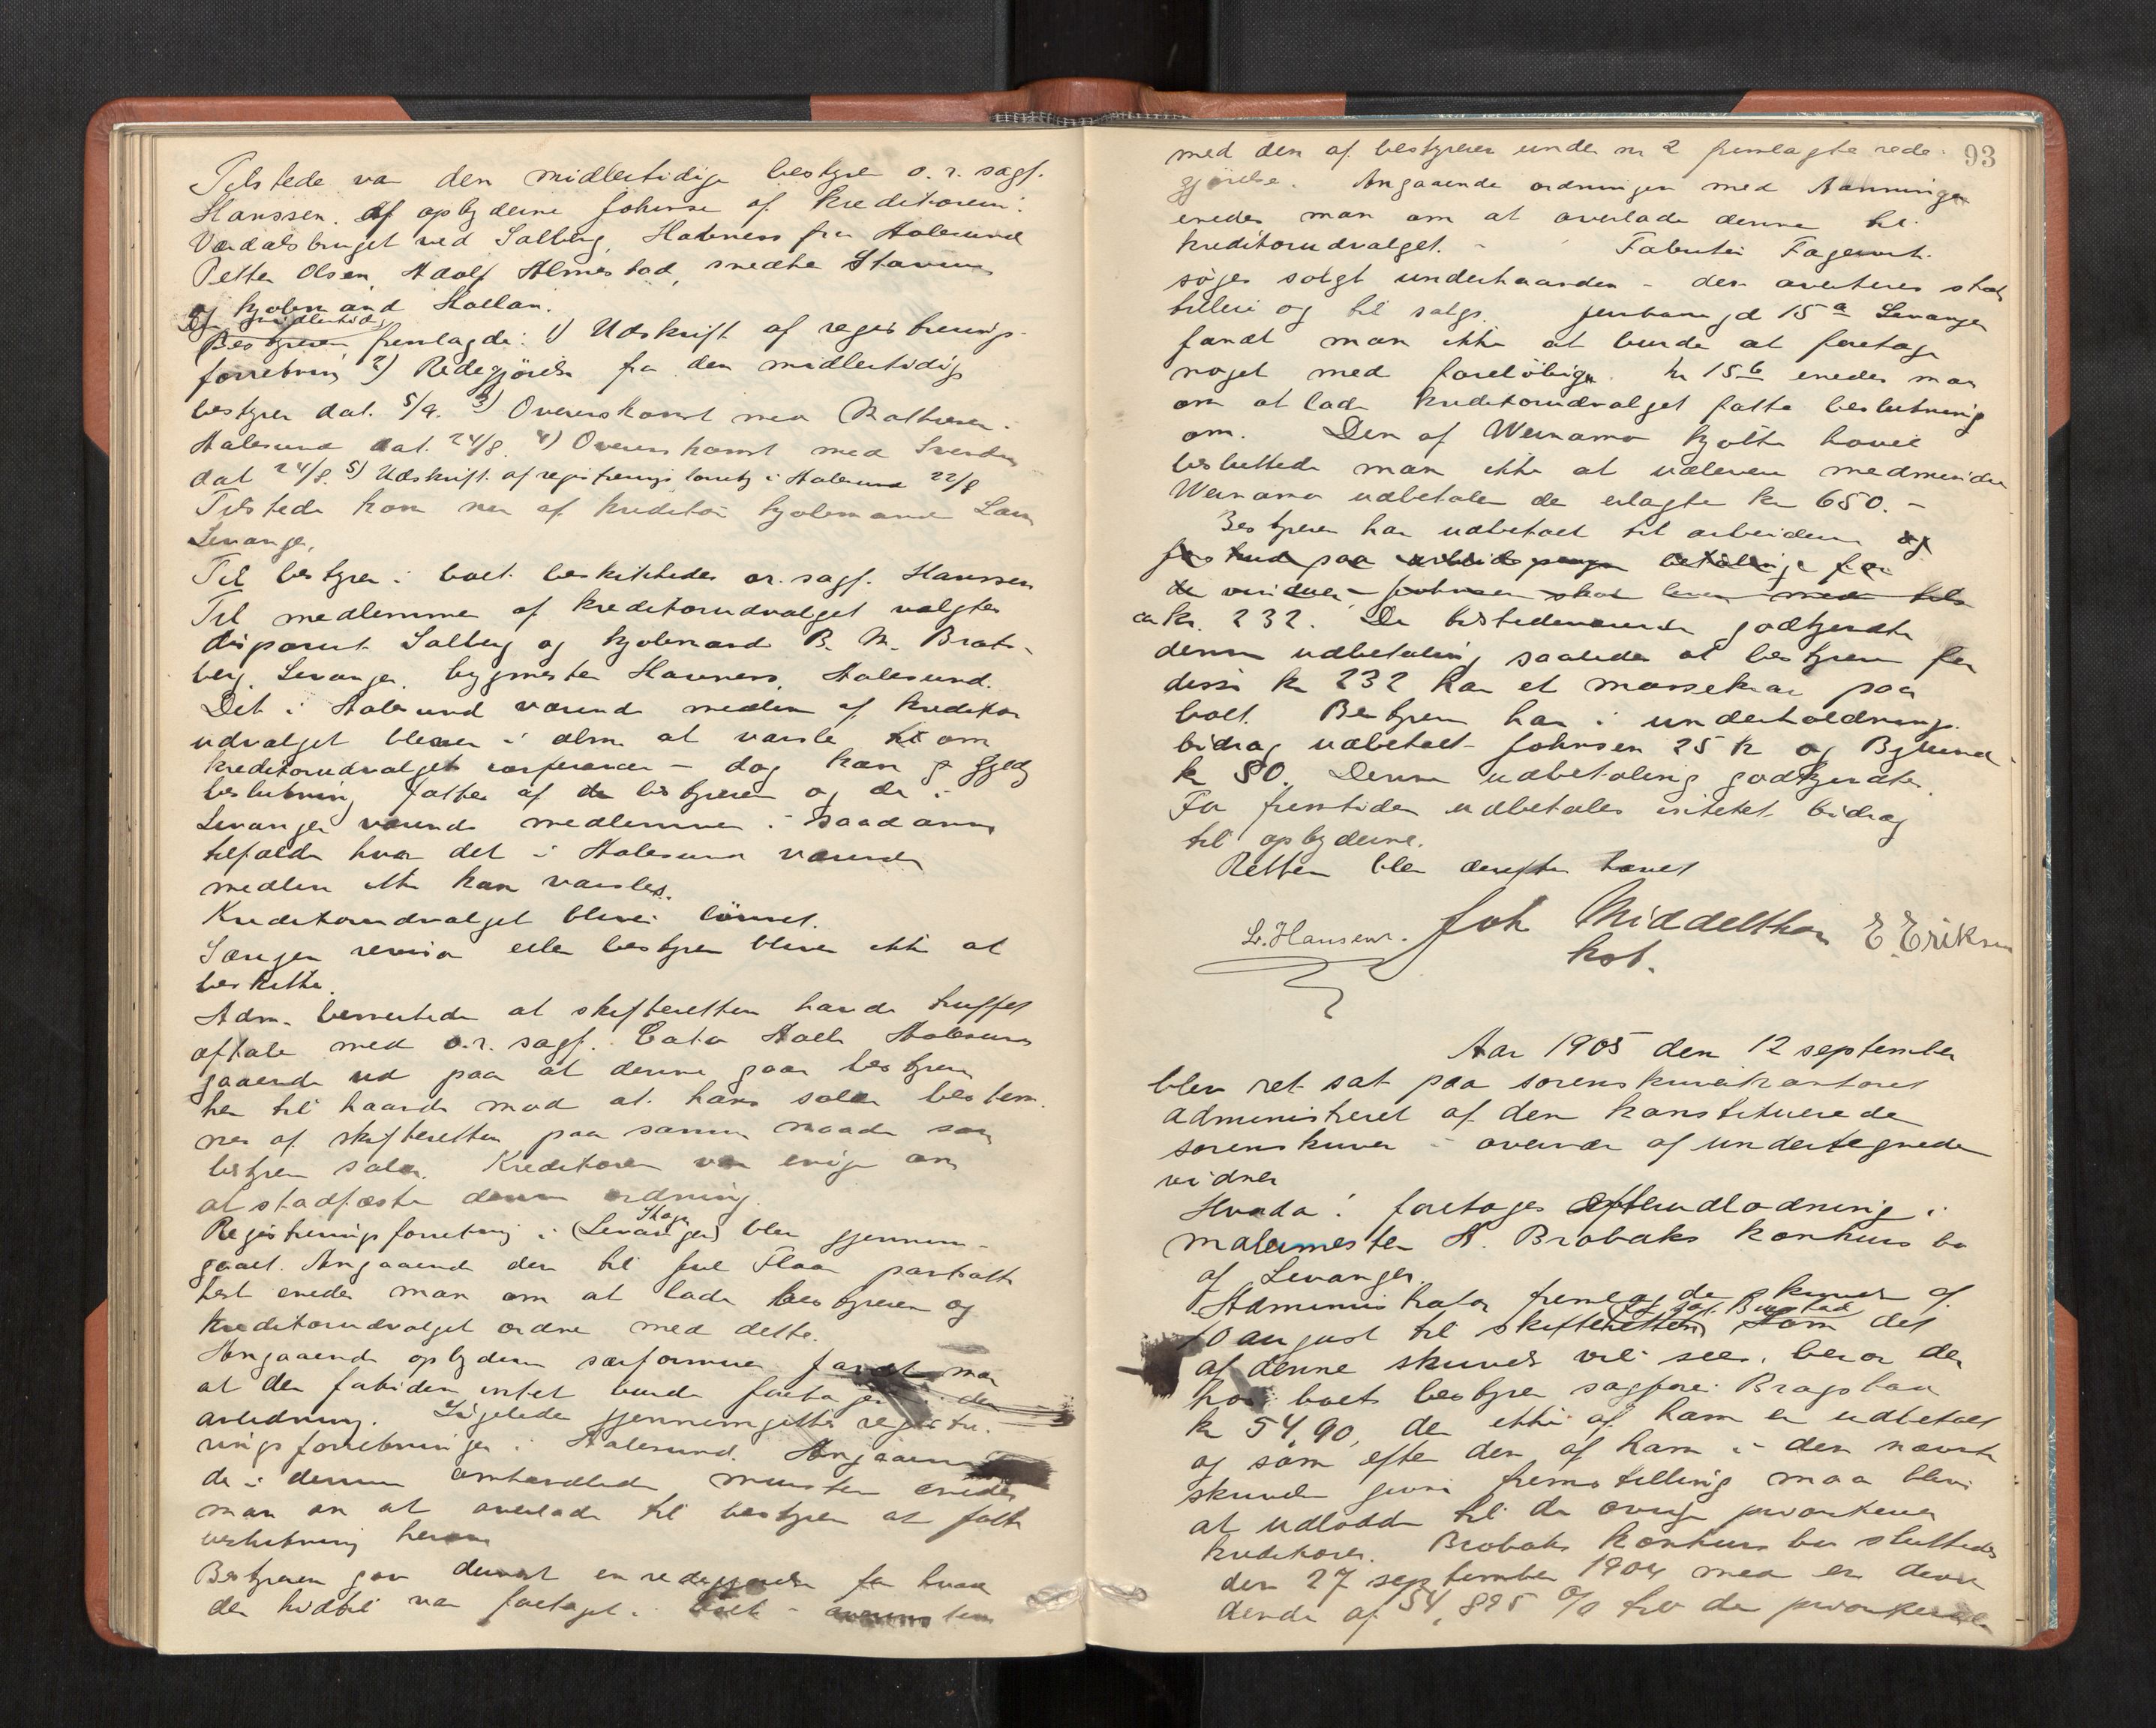 Tilstede var den midlertidige bestyrer o. r. sagf.
Hanssen. Af opbyderne Johnsen af kreditorerne:
Værdalsbruget ved Salberg, Havnevas fra Aalesund
Petter Olsen, Adolf Almestad, snedker
og kjøbmand Hallan.
Den midlertidige
Bestyreren fremlagde: 1) Udskrift af registrerings-
forretning 2) Redegjörelse fra den midlertidige
bestyrer dat. 5/9. 3) Overenskomst med Mathisen
Aalesund dat. 24/8. 4) Overenskomst med
dat 24/8. 5) Udskrift af registreringsforretng i Aalesund 22/8
Tilstede kom nu af kreditor kjøbmand
Levanger.
Til bestyrer i boet beskikkedes or. sagf. Hanssen
Til medlemmer af kreditorudvalget valgtes
disponent Salberg og kjøbmand B. N. Brat-
berg, Levanger, bygmester, Aalesund.
Det i Aalesund værende medlem af kreditor
udvalget bliver i alm. at varsle om
kreditorudvalgets conferencer - dog kan
beslutning fattes af de bestyreren og de i
Levanger værende medlemmer i saadanne
tilfælde hvor det i Aalesund værende
medlem ikke kan varsles.
Kreditorudvalget bliver lönnet.
Særegen revisor eller bestyrer bliver ikke at
beskikke.
Adm. bemerkede at skifteretten havde truffet
aftale med o.r. sagf. Aalesund
gaaende ud paa at denne gaar bestyreren
her til haande mod at hans salær bestem-
mes af skifteretten paa samme maade som
bestyrers salær. Kreditorer var enige om
at stadfæste denne ordning.
Registreringsforretning i (Levanger) Skogn blev gjennem-
gaaet. Angaaende den til Flaa pantsatte
hest enedes man om at lade bestyreren og
kreditorudvalget ordne med dette.
Angaaende opbyderen særformue fandt man
at der for tiden intet burde foretages i den
anledning. Ligeledes gjennemgikkes registre-
ringsforretningen i Aalesund. Angaaende
de i denne omhandlede mønster enedes
man om at overlade til bestyrer at fatte
beslutning herom
Bestyreren gav dernæst en redegjørelse for hvad
der hidtil var foretaget i boet - overensstem
93
med den af bestyrer under nr 2 fremlagte rede-
gjörelse. Angaaende ordningen med
enedes man om at overlade denne til
kreditorudvalget. - Fabriken
söges solgt underhaanden - den averteres
og til salgs. 15 a Levanger
fandt man ikke at burde at foretage
noget med foreløbig. Nr 15 b enedes man
om at lade kreditorudvalget fatte beslutning
om. Den af Weinamo kjøbte
besluttede man ikke at udlevere medmindre
Weinamo udbetaler de erlagte kr 650. -
Bestyreren har udbetalt til arbeiderne og

ca kr. 232. De tilstedeværende godkjendte
denne udbetaling saaledes at bestyreren for
disse kr 232 har et massekrav paa
boet. Bestyreren har i underholdnings-
bidrag udbetalt Johnsen 25 kr og Bylund
kr 80. Denne udbetaling godkjendtes.
For fremtiden udbetales intetet bidrag
til opbyderne.
Retten blev derefter hævet
L. Hansen. Joh Middelthon E. Eriksen
kst.
Aar 1905 den 12 september
blev ret sat paa sorenskriverkontoret
administreret af den konstituerede
sorenskriver i overvær af undertegnede
vidner
Hvada: foretoges efterudlodning i
malermester A. Brobaks konkurs bo
af Levanger.
Administrator fremlagde skrivelse af
10 august til skifteretten. Som det
af denne skrivelse vil sees, beror der
hos boets bestyrer sagfører Bragstad
kr 54,90, der ikke af ham er udbetalt
og som efter den af ham i den nævnte
skrivelse givne fremstilling maa blive
at udlodde til de övrige prioriterede
kreditorer. Brobaks konkurs bo sluttedes
den 27 september 1904 med en divi
dende af 54,825 % for de prioriterede